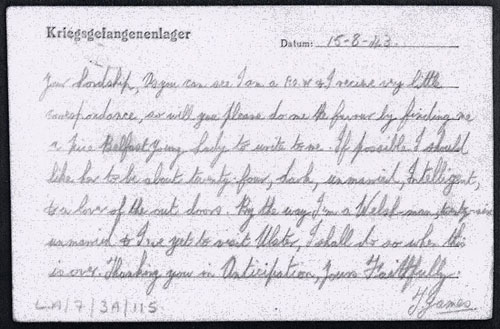 Kriegsgefangenenlager
Datum: 15-8-43.
Your Lordship, As you can see I am a P.O.W & I receive very little
correspondance, so will you please do me the favour by finding me
a nice Belfast Young Lady to write to me. If possible I should
like her to be about twenty-four, dark, unmarried, Intelligent,
& a lover of the out doors. By the way I'm a Welsh-man, twenty-six
unmarried & I've yet to visit Ulster, I shall do so when this
is over. Thanking you in Anticipation, Yours Faithfully.
J James
LA/7/3A/115